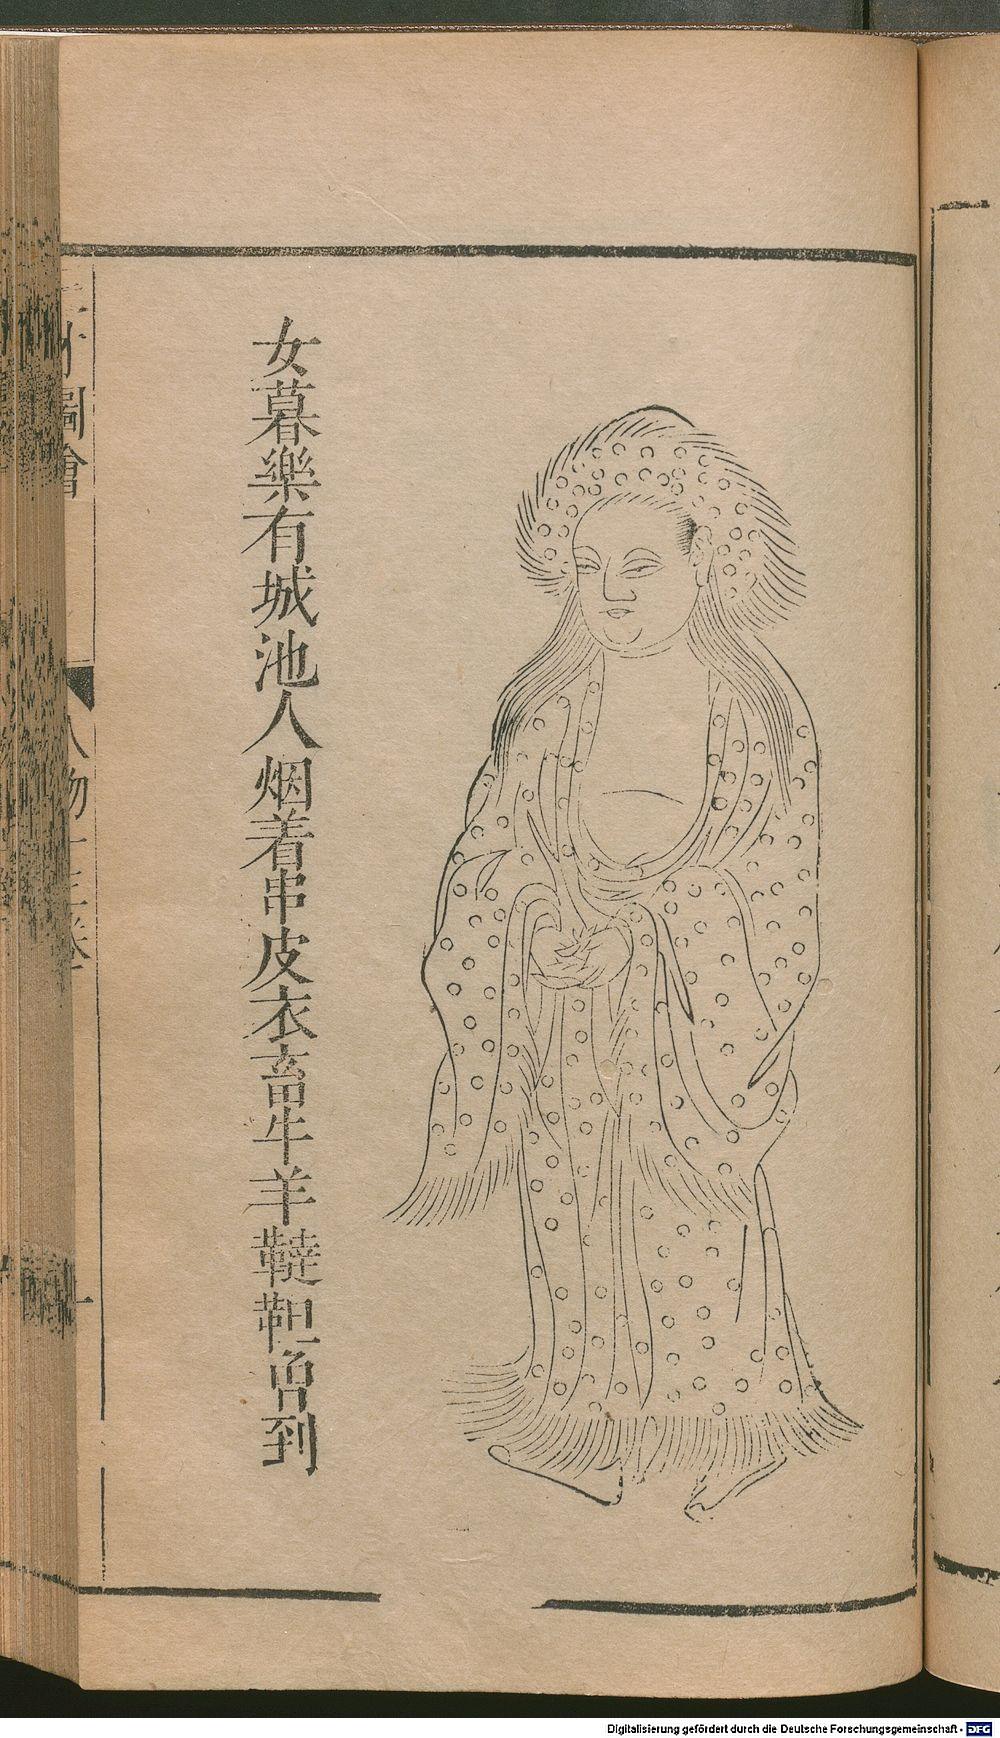 女暮樂有城池人烟着串皮衣畜牛羊韃靼曾到
圖會
人物十三卷
Digitalisierung gefördert durch die Deutsche Forschungsgemeinschaft - DFG